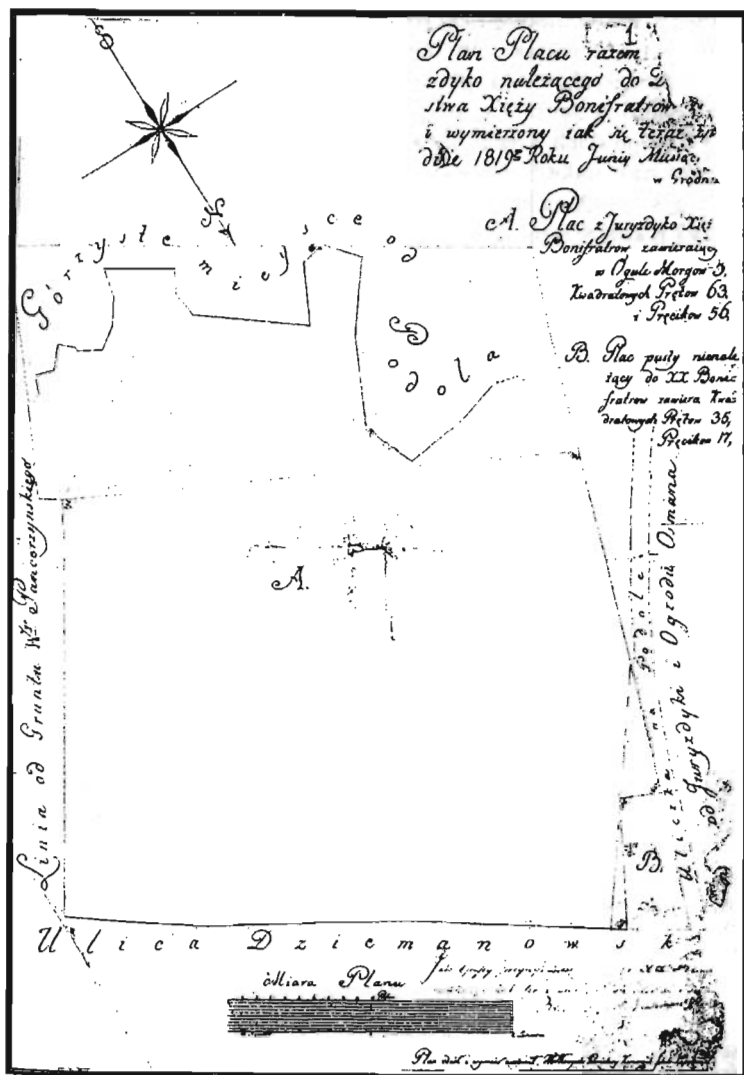 1
Plan Placu razem
zdyko należącego do
stwa Xięży Bonifratrów
i wymierzony iak się teraz
dnie 1819 Roku Junij Miesiąc
w Grodn
S
N
A. Plac z Juryzdyko Xię
Bonifratrow zawieraiący
w Ogule Morgow 3,
Kwadratowych Prętow 63,
i Pręcikow 56,
B. Plac pusty nienale
żący do XX Boni
fratrow zawiera Kwa
dratowych Prętow 35,
Pręcikow 17,
Górzyste mieysce od Podola
Linia od Gruntu
A.
Uliczka na Podole
od Juryzdyki i Ogrodu Osmana
B.
Ulica Dziemanowsk
Miara Planu